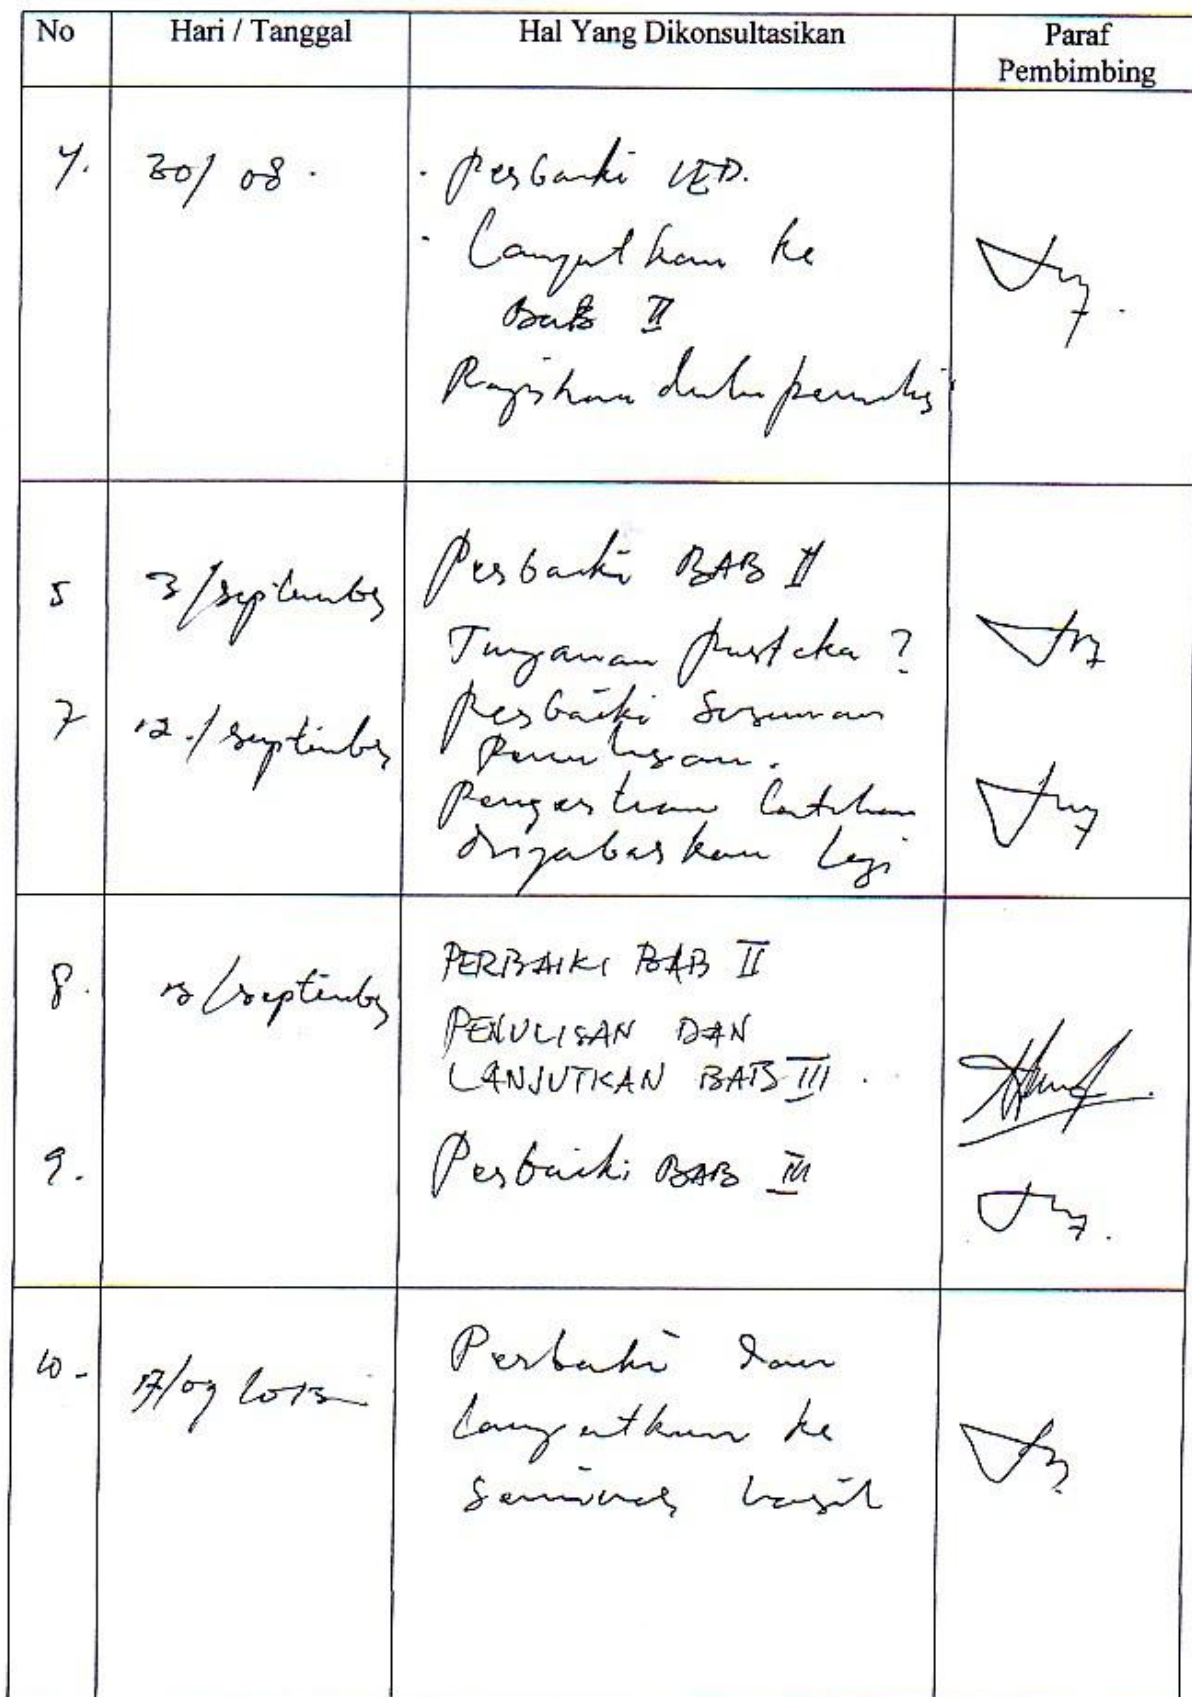 No Hari / Tanggal Hal Yang Dikonsultasikan Paraf
Pembimbing
4. 30/ 08. . Perbaiki
. Lanjutkan ke
BAB II
dulu penulis
5 3/september Perbaiki BAB II
Tinjauan pustaka ?
7 12./september Perbaiki susunan
penulisan.
Pengertian latihan
dijabarkan lagi
8. 13/september PERBAIKI BAB II
PENULISAN DAN
LANJUTKAN BAB III.
9. Perbaiki BAB III
10- 17/09 2013 Perbaiki dan
lanjutkan ke
seminar hasil